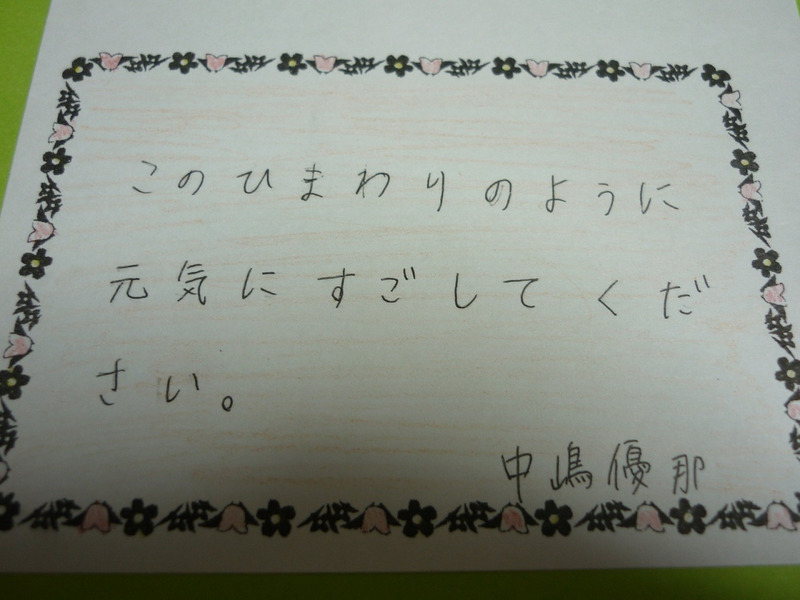 このひまわりのように
元気にすごしてくだ
さい。
中嶋優那